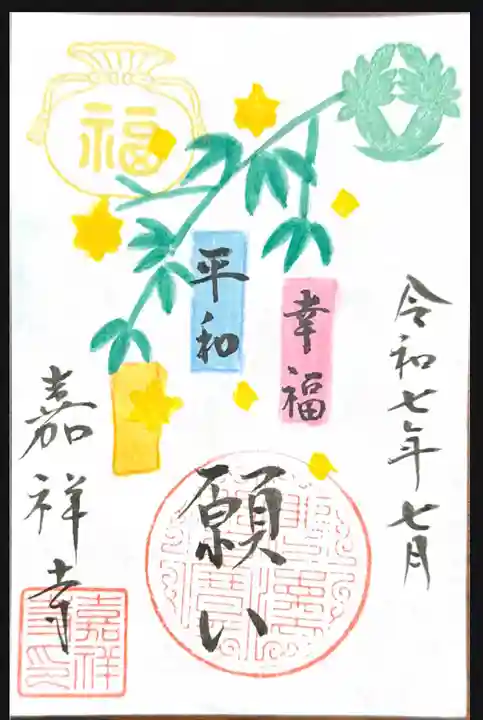 福
平和
幸福
令和七年七月
願い
嘉祥寺
嘉祥
寺印